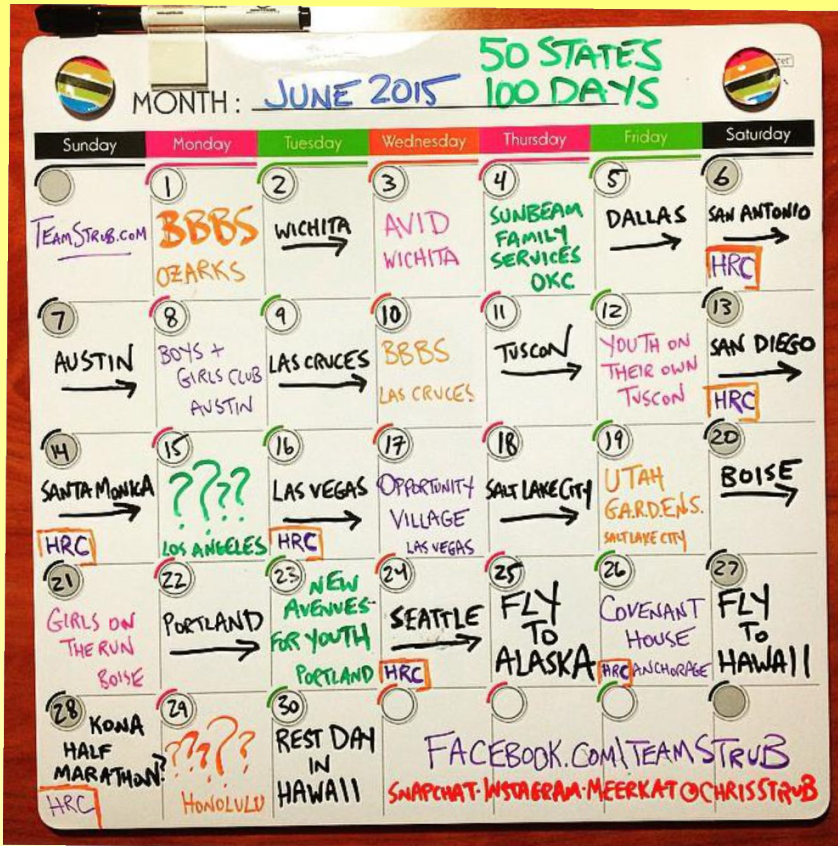 50 STATES
MONTH: JUNE 2015 100 DAYS
Sunday Monday Tuesday Wednesday Thursday Friday Saturday
TEAMSTRUB.COM
1
BBBS
OZARKS
2
WICHITA
3
AVID
WICHITA
4
SUNBEAM
FAMILY
SERVICES
OKC
5
DALLAS
6
SAN ANTONIO
HRC
7
AUSTIN
8
BOYS +
GIRLS CLUB
AUSTIN
9
LAS CRUCES
10
BBBS
LAS CRUCES
11
TUSCON
12
YOUTH ON
THEIR OWN
TUSCON
13
SAN DIEGO
HRC
14
SANTA MONICA
HRC
15
????
LOS ANGELES
16
LAS VEGAS
HRC
17
OPPORTUNITY
VILLAGE
LAS VEGAS
18
SALT LAKE CITY
19
UTAH
G.A.R.D.E.N.S.
SALT LAKE CITY
20
BOISE
21
GIRLS ON
THE RUN
BOISE
22
PORTLAND
23
NEW
AVENUES
FOR YOUTH
PORTLAND
24
SEATTLE
HRC
25
FLY
TO
ALASKA
26
COVENANT
HOUSE
HRC ANCHORAGE
27
FLY
TO
HAWAII
28
KONA
HALF
MARATHON?
HRC
29
????
HONOLULU
30
REST DAY
IN
HAWAII
FACEBOOK.COM\TEAMSTRUB
SNAPCHAT·INSTAGRAM·MEERKAT@CHRISSTRUB